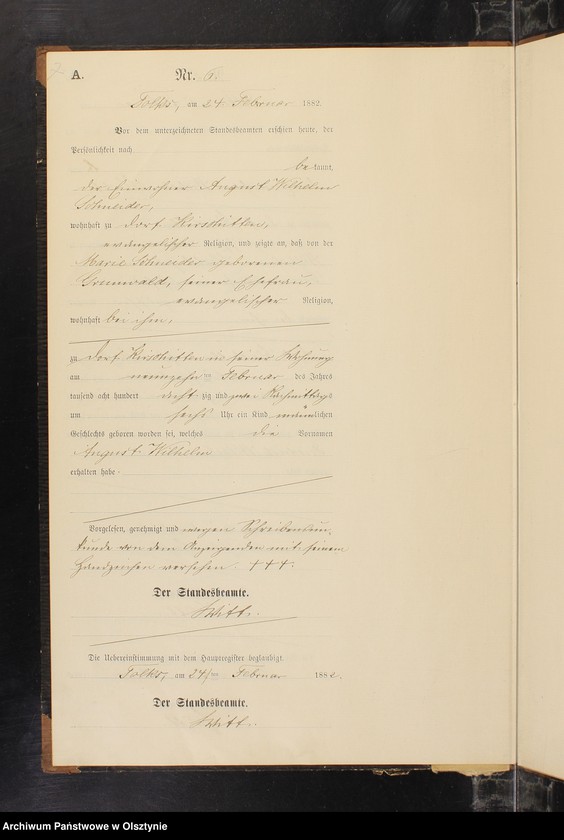 A. Nr. 6.
Tolks, am 24 Februar 1882.
Vor dem unterzeichneten Standesbeamten erschien heute, der
Persönlichkeit nach
bekannt,
der Einwohner August Wilhelm
Schneider,
wohnhaft zu Dorf
evangelischer Religion, und zeigte an, daß von der
Marie Schneider geborenen
Grunwald, seiner Ehefrau,
evangelischer Religion,
wohnhaft bei ihm,
zu Dorf in seiner Wohnung
am neunzehnten Februar des Jahres
tausend acht hundert achtzig und zwei Nachmittags
um sechs Uhr ein Kind männlichen
Geschlechts geboren worden sei, welches die Vornamen
August Wilhelm
erhalten habe.
Vorgelesen, genehmigt und wegen Schreibensun-
kunde von dem Anzeigenden mit seinem
Handzeichen versehen. +++.
Der Standesbeamte.
Witt.
Die Uebereinstimmung mit dem Hauptregister beglaubigt.
Tolks, am 24ten Februar 1882.
Der Standesbeamte.
Witt.
Archiwum Państwowe w Olsztynie